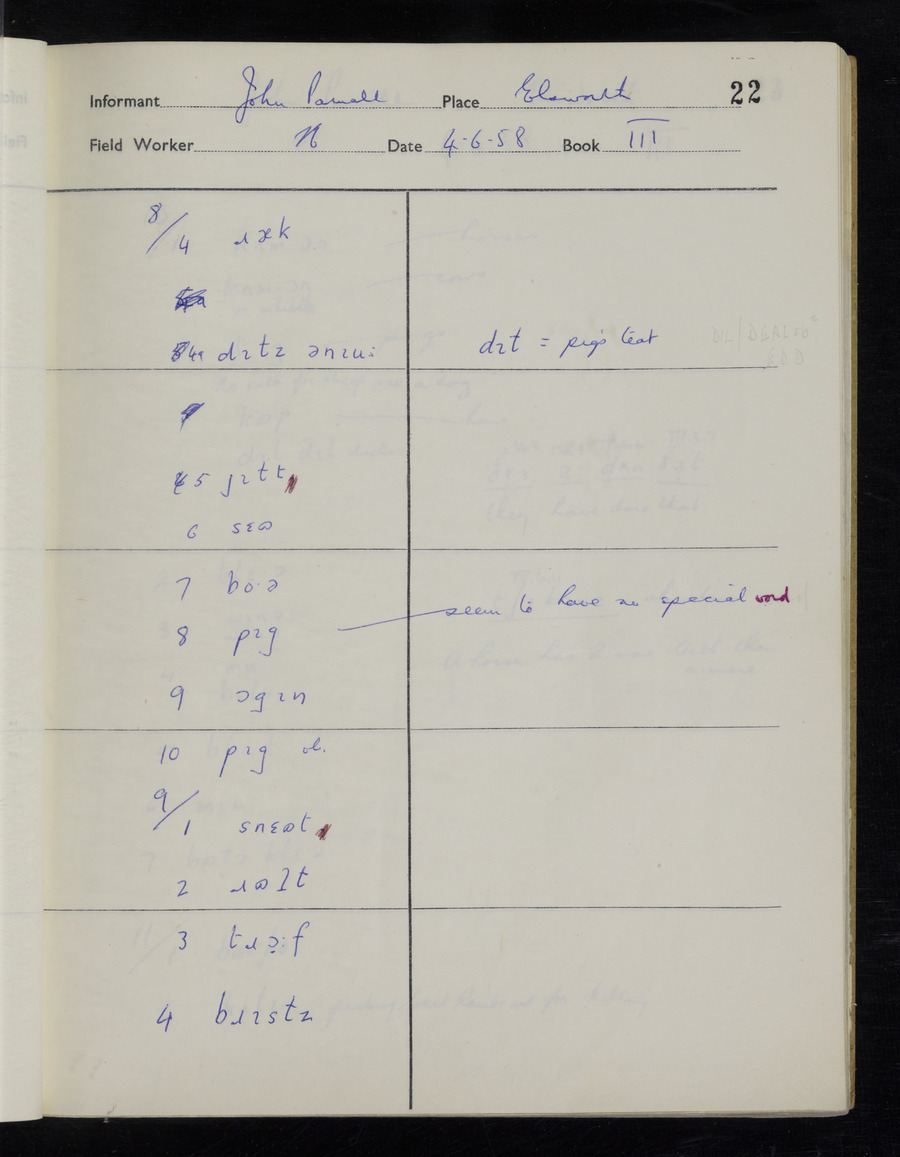 22
Informant John Parnell Place Elsworth
Field Worker N Date 4-6-58 Book III
8/4 ɹæk
4a dɪtz ənɪuː dɪt = pig's teat
5 jɪtt
6 sɛɷ
7 bo·ə
8 pɪg seem to have no special word
9 ɔgɪn
10 pɪg ol.
9/1 snɛɷt
2 ɹɷɪt
3 tɹɔːf
4 bɹɪstz